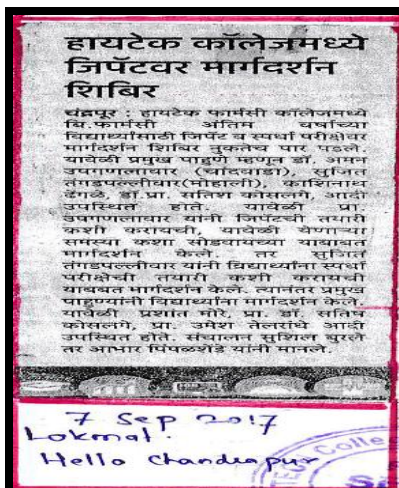 हायटेक कॉलेजमध्ये
जिपॅटवर मार्गदर्शन
शिबिर
चंद्रपूर : हायटेक फार्मसी कॉलेजमध्ये
बि.फार्मसी अंतिम वर्षाच्या
विद्यार्थ्यांसाठी जिपॅट व स्पर्धा परीक्षेवर
मार्गदर्शन शिबिर नुकतेच पार पडले.
यावेळी प्रमुख पाहुणे म्हणून डॉ. अमन
उपगणलावार (चांदवाडा), सुजित
तंगडपल्लीवार(मोहाली), काशिनाथ
ढेंगळे, डॉ.प्रा. सतिश कोसलगे, आदी
उपस्थित होते. यावेळी प्रा.
उपगणलावार यांनी जिपॅटची तयारी
कशी करायची, यावेळी येणाऱ्या
समस्या कशा सोडवायच्या याबाबत
मार्गदर्शन केले. तर सुजित
तंगडपल्लीवार यांनी विद्यार्थ्यांना स्पर्धा
परीक्षेची तयारी कशी करायची
याबाबत मार्गदर्शन केले. त्यानंतर प्रमुख
पाहुण्यांनी विद्यार्थ्यांना मार्गदर्शन केले.
यावेळी प्रशांत मोरे, प्रा. डॉ. सतिष
कोसलगे, प्रा. उमेश तेलरांधे आदी
उपस्थित होते. संचालन सुशिल बुरले
तर आभार पिंपळशेंडे यांनी मानले.
7 Sep 2017
Lokmat.
Hello Chandrapur
Colle